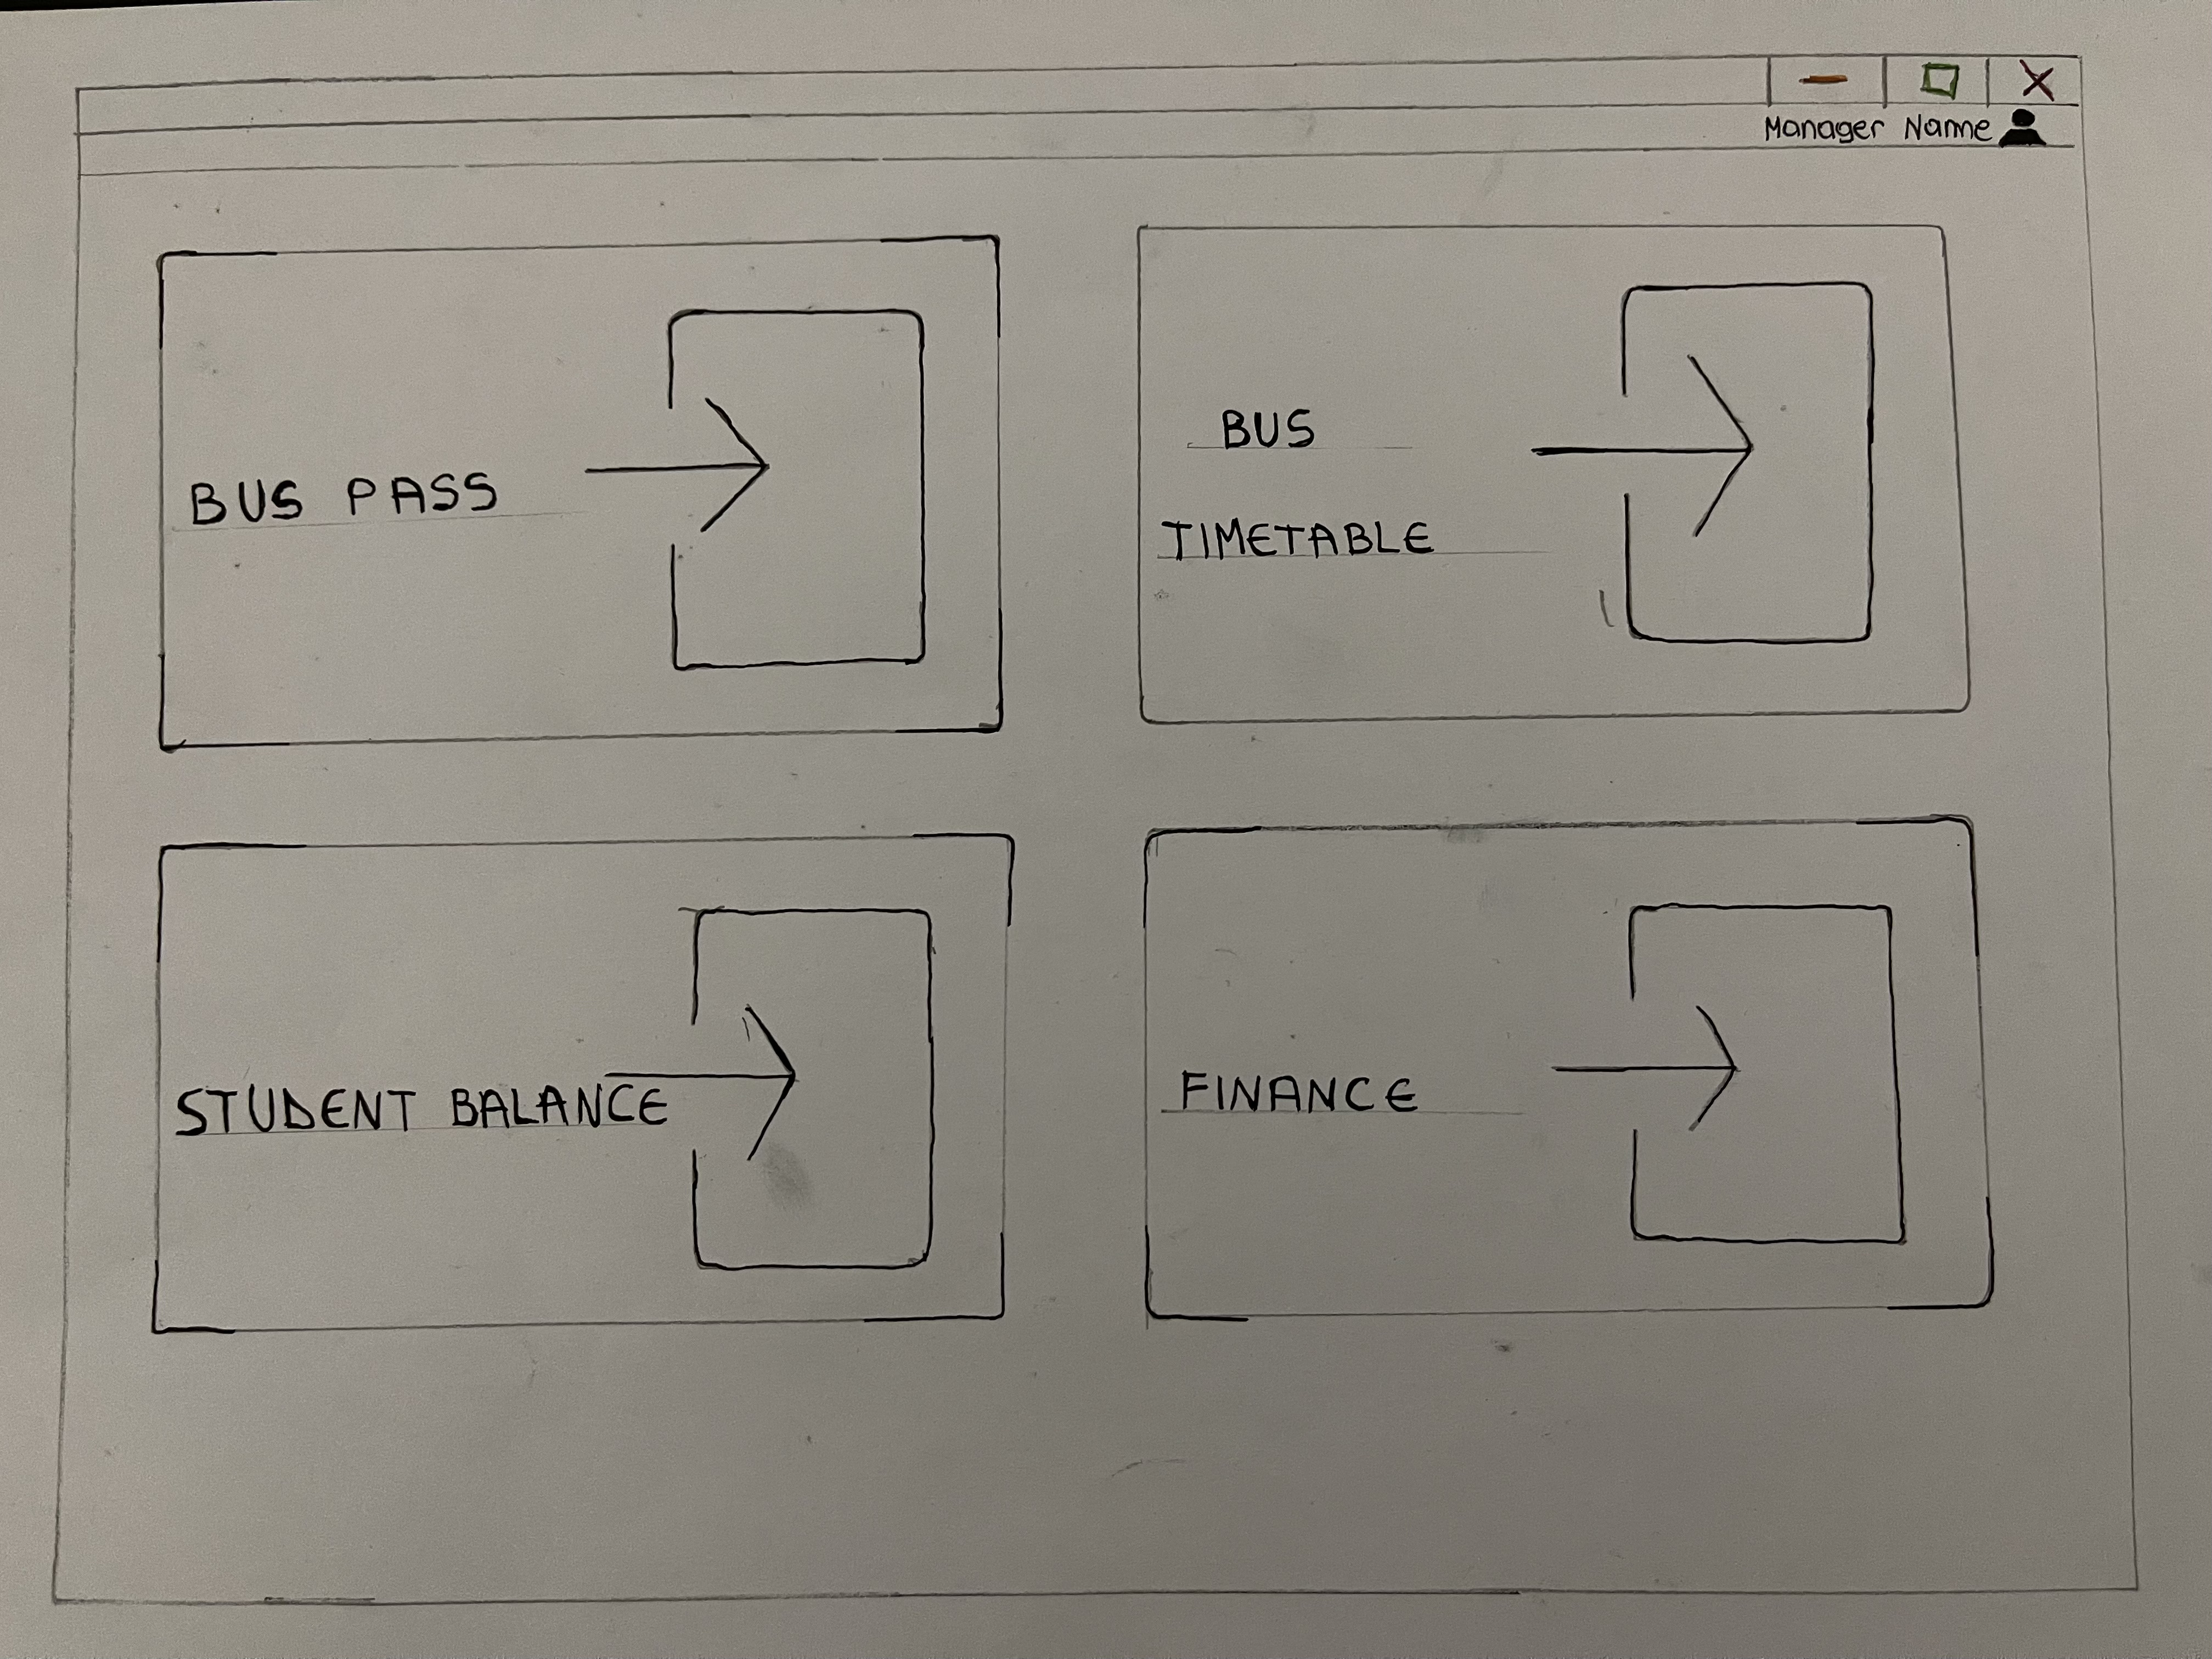 Manager Name
BUS PASS
BUS
TIMETABLE
STUDENT BALANCE
FINANCE